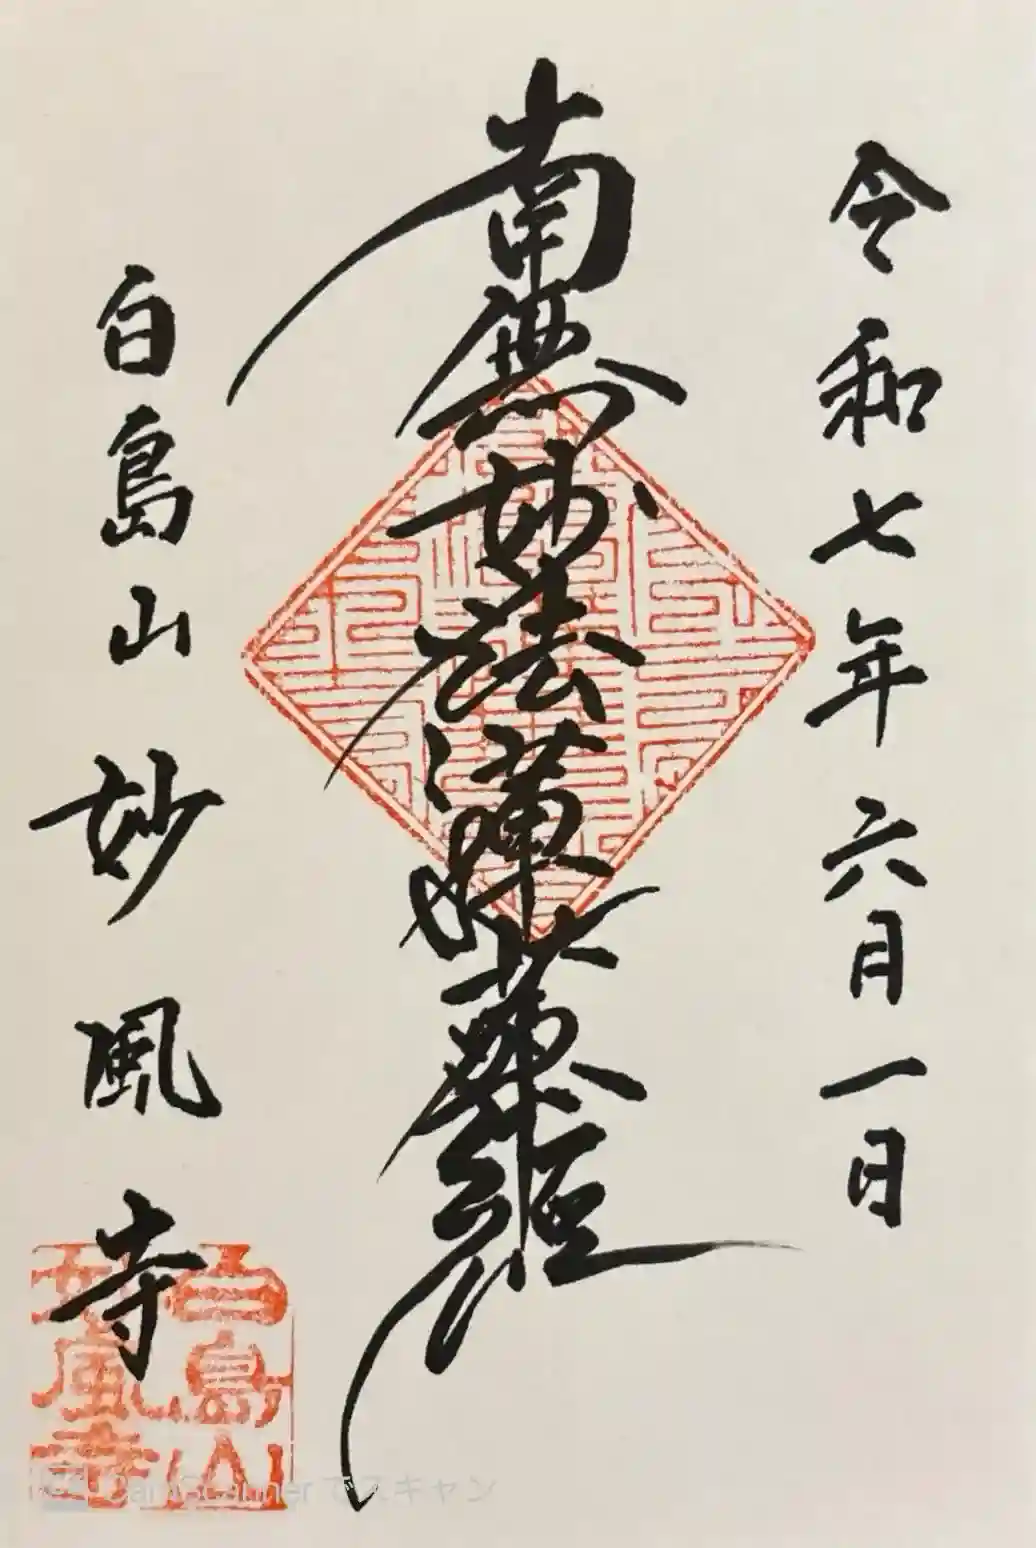 令和七年六月一日
南無妙法蓮華経
白島山 妙風寺
白島山
妙風寺
CamScanner でスキャン